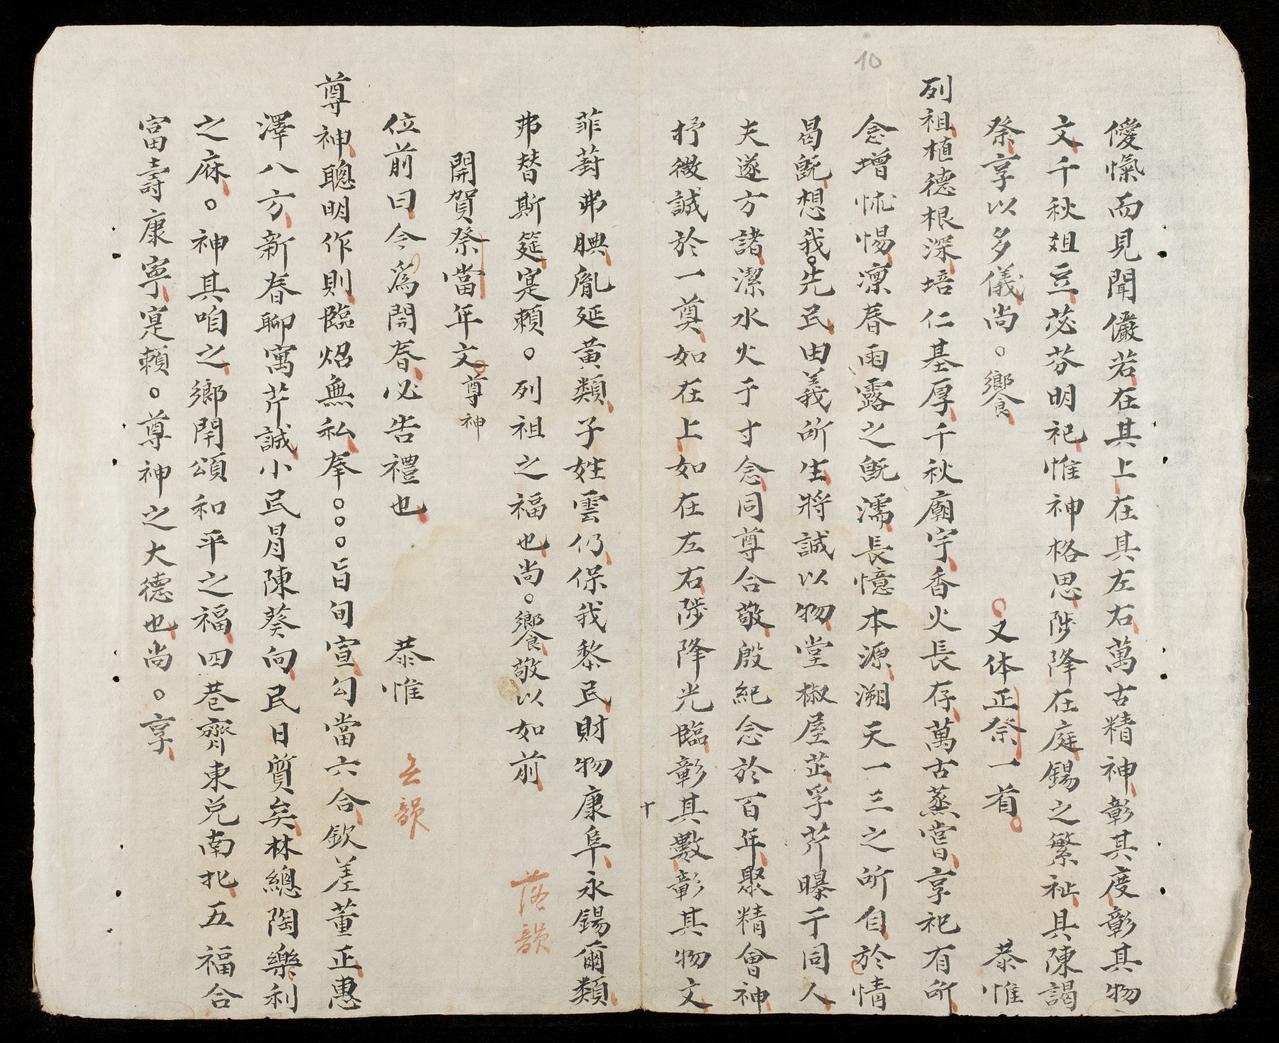 10
僾愾而見聞儼若在其上在其左右萬古精神彰其度彰其物
文千秋俎豆苾芬明祀惟神格思陟降在庭錫之繁祉具陳謁
祭享以多儀尚。饗 。又体正祭一首。 恭惟
列祖植德根深培仁基厚千秋廟宇香火長存萬古蒸嘗享祀有所
念增怵惕凛春雨露之旣濡長憶本源溯天一三之所自於情
曷旣想我。先民由義所生將誠以物堂椒屋茁孚芹曝于同人
夫遂方諸潔水火于寸念同尊合敬殷紀念於百年聚精會神
抒微誠於一奠如在上如在左右陟降光臨彰其數彰其物文
菲葑弗腆胤延黃類子姓雲仍保我黎民財物康阜永錫爾類
弗替斯筵寔賴。列祖之福也尚。饗敬以如前 落韻
開賀祭當年文。尊神
位前曰今爲開春必告禮也 恭惟 去韻
尊神聰明作則臨炤無私奉。。。旨旬宣勾當六合欽差董正惠
澤八方新春聊寓芹誠小民胥陳葵向民日質矣林總陶樂利
之庥。神其咱之鄉閈頌和平之福四巷齊東兌南北五福合
富壽康寧寔賴。尊神之大德也尚。享